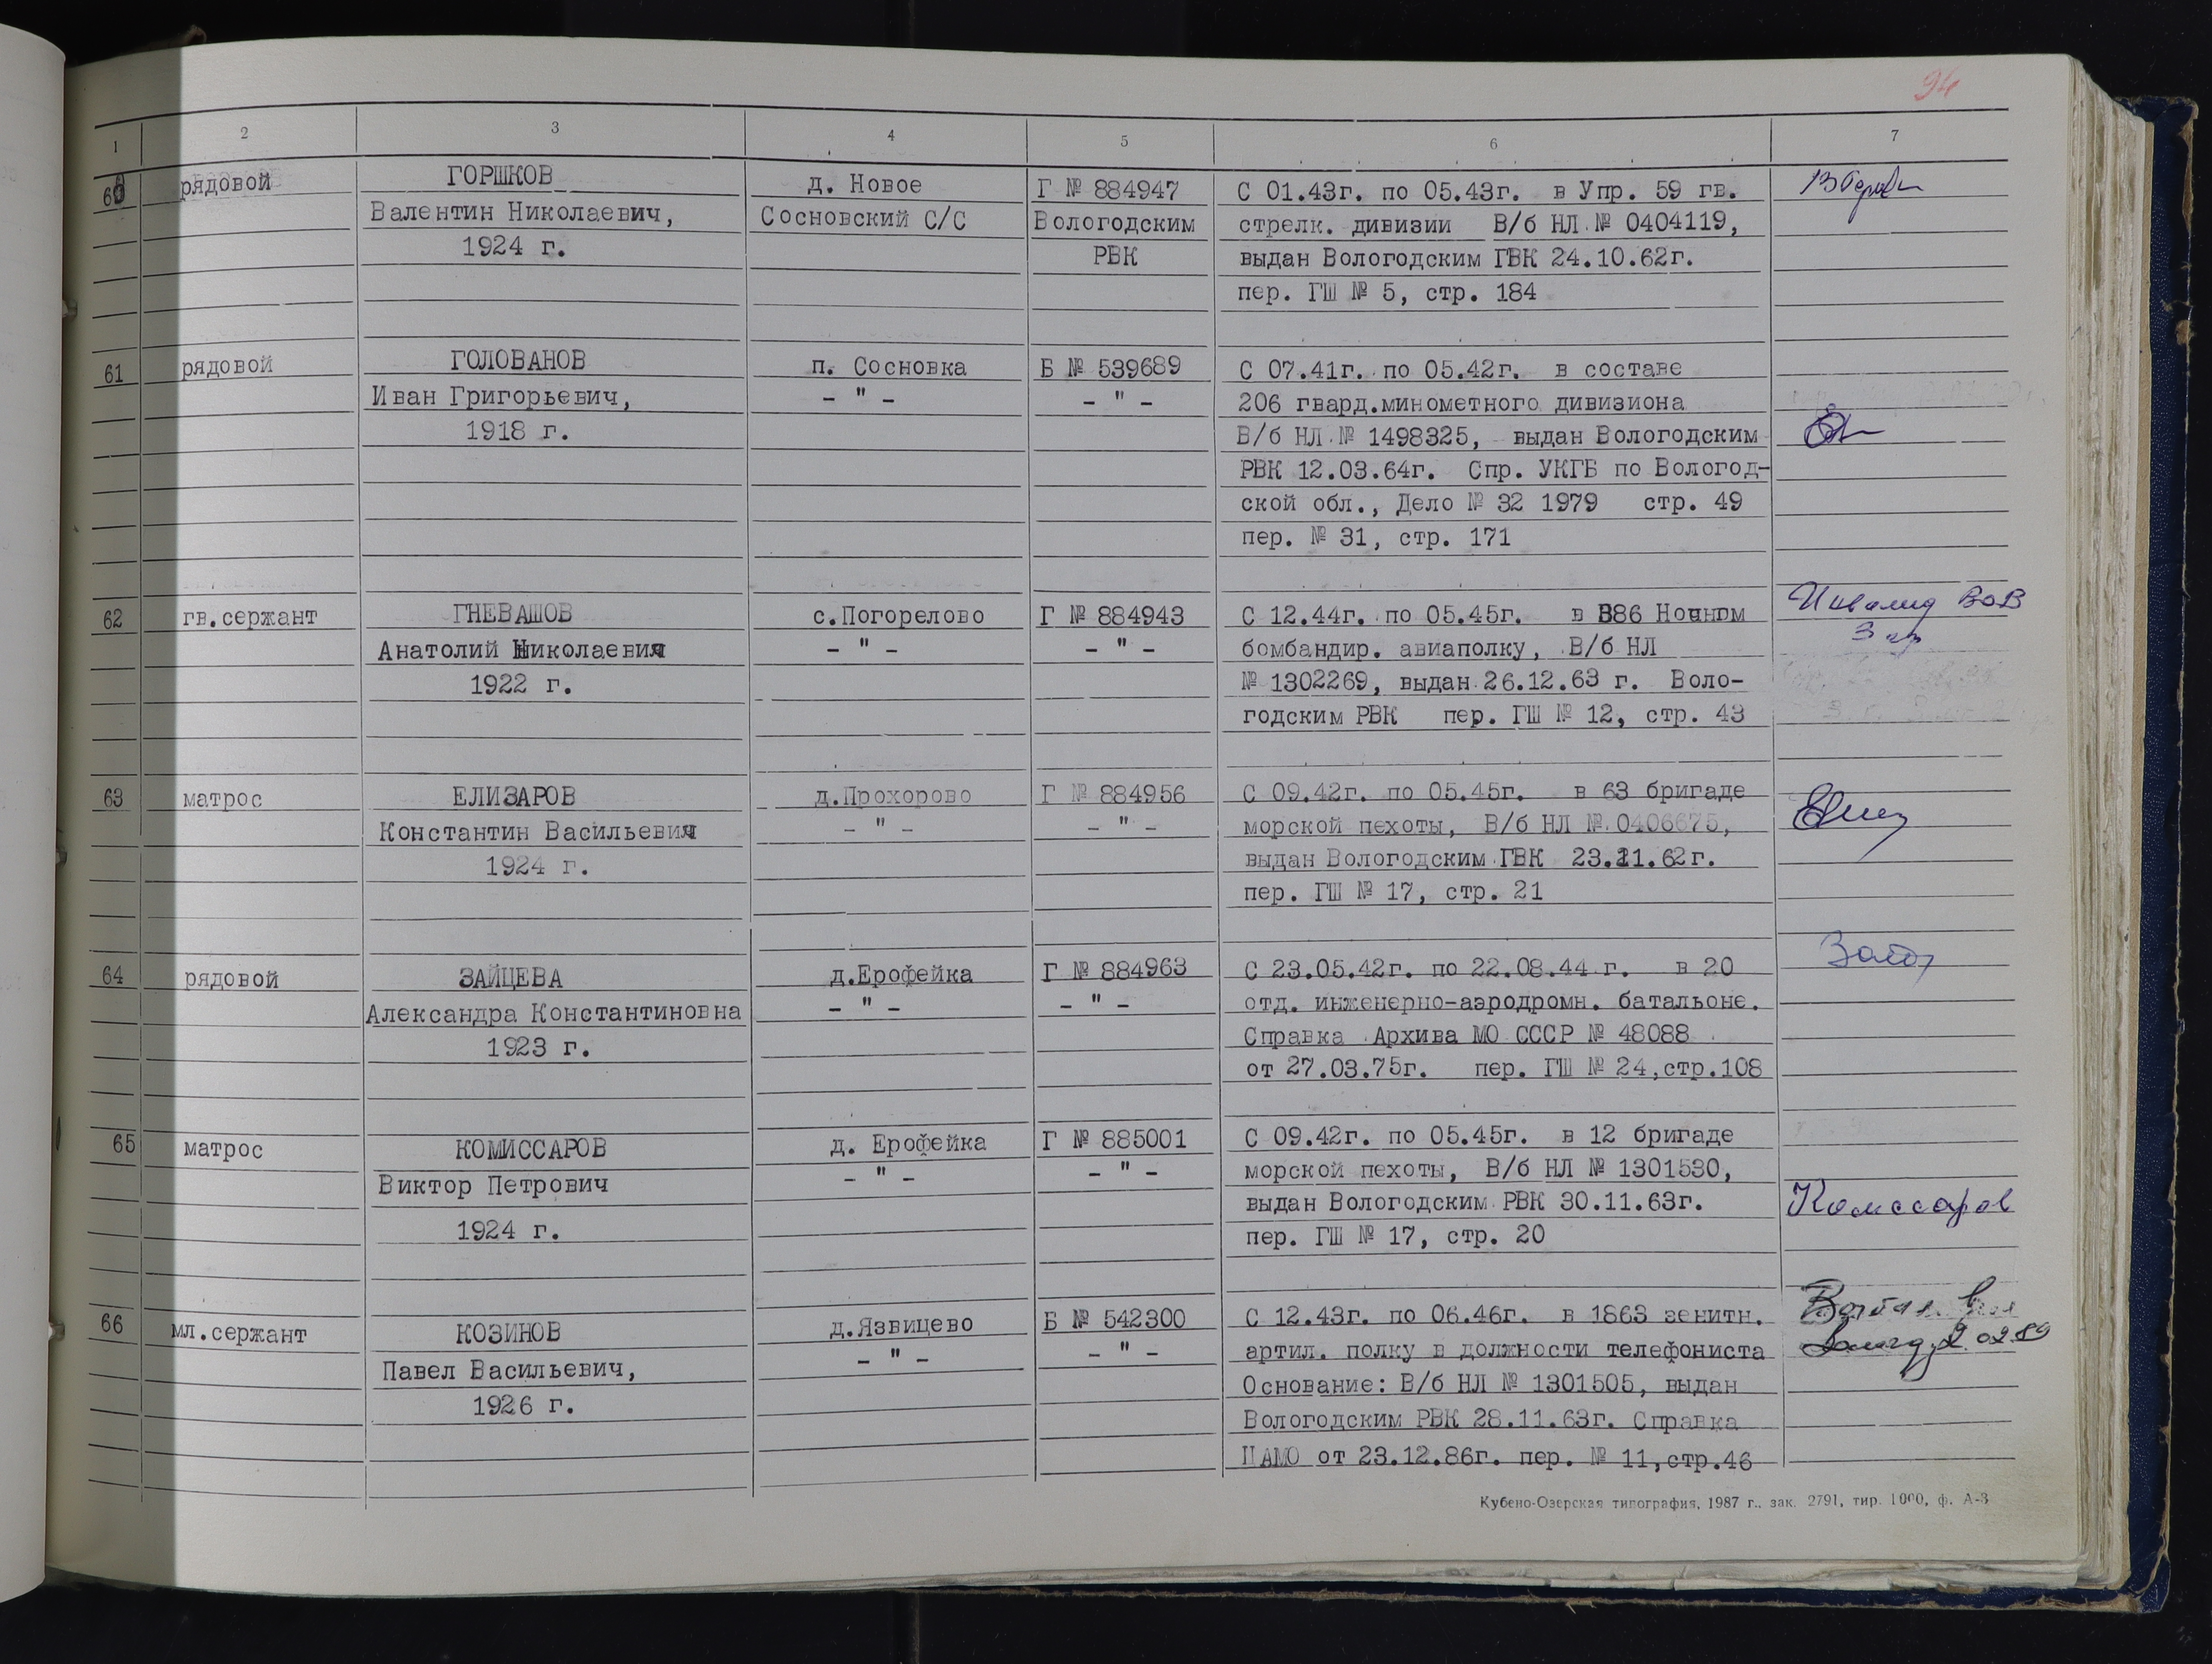 94
1 2 3 4 5 6 7
60 рядовой ГОРШКОВ д. Новое Г № 884947 С 01.43г. по 05.43г. в Упр. 59 гв.
Валентин Николаевич, Сосновский С/С Вологодским стрелк. дивизии В/б НЛ № 0404119,
1924 г. РВК выдан Вологодским ГВК 24.10.62г.
пер. ГШ № 5, стр. 184
61 рядовой ГОЛОВАНОВ п. Сосновка Б № 539689 С 07.41г. по 05.42г. в составе
Иван Григорьевич, - " - - " - 206 гвард.минометного дивизиона
1918 г. В/б НЛ № 1498325, выдан Вологодским
РВК 12.03.64г. Спр. УКГБ по Вологод-
ской обл., Дело № 32 1979 стр. 49
пер. № 31, стр. 171
62 гв.сержант ГНЕВАШОВ с.Погорелово Г № 884943 С 12.44г. по 05.45г. в 886 Ночном Инвалид ВОВ
Анатолий Николаевич - " - - " - бомбандир. авиаполку, В/б НЛ 3 гр
1922 г. № 1302269, выдан 26.12.63 г. Воло-
годским РВК пер. ГШ № 12, стр. 43
63 матрос ЕЛИЗАРОВ д.Прохорово Г № 884956 С 09.42г. по 05.45г. в 63 бригаде
Константин Васильевич - " - - " - морской пехоты, В/б НЛ № 0406675,
1924 г. выдан Вологодским ГВК 23.11.62г.
пер. ГШ № 17, стр. 21
64 рядовой ЗАЙЦЕВА д.Ерофейка Г № 884963 С 23.05.42г. по 22.08.44 г. в 20
Александра Константиновна - " - - " - отд. инженерно-аэродромн. батальоне.
1923 г. Справка Архива МО СССР № 48088
от 27.03.75г. пер. ГШ № 24,стр.108
65 матрос КОМИССАРОВ д. Ерофейка Г № 885001 С 09.42г. по 05.45г. в 12 бригаде
Виктор Петрович - " - - " - морской пехоты, В/б НЛ № 1301530,
выдан Вологодским РВК 30.11.63г. Комссаров
1924 г. пер. ГШ № 17, стр. 20
66 мл.сержант КОЗИНОВ д.Язвицево Б № 542300 С 12.43г. по 06.46г. в 1863 зенитн.
Павел Васильевич, - " - - " - артил. полку в должности телефониста
1926 г. Основание: В/б НЛ № 1301505, выдан
Вологодским РВК 28.11.63г. Справка
ЦАМО от 23.12.86г. пер. № 11,стр.46
Кубено-Озерская типография, 1987 г., зак. 2791, тир. 1000, ф. А-3